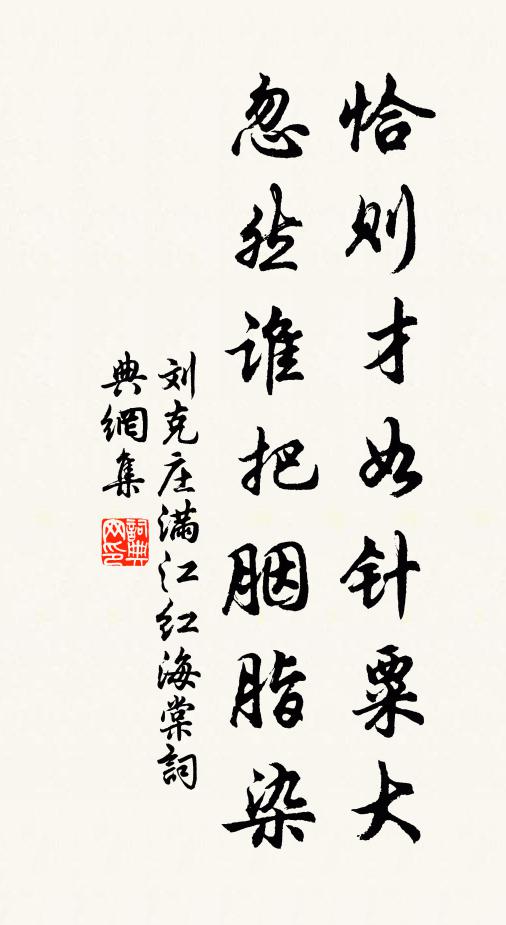 恰则才如针粟大
忽然谁把胭脂染
刘克庄满江红海棠詞
典網集
詞典网印